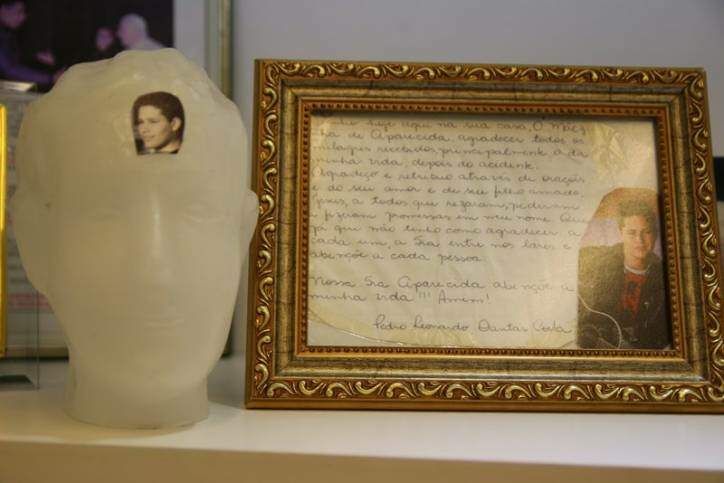 Venho hoje aqui na sua casa, Ó Mãezi
nha de Aparecida, agradecer todos os
milagres recebidos, principalmente a da
minha vida, depois do acidente.
Agradeço e retribuo através de orações
e do seu amor e de seu filho amado
Jesus, a todos que rezaram, pediram
e fizeram promessas em meu nome. Que
já que não tenho como agradecer a
cada um, a Sra entre nos lares e
abençõe a cada pessoa.
Nossa Sra Aparecida abençõe a
minha vida!!! Amém!
Pedro Leonardo Dantas Costa